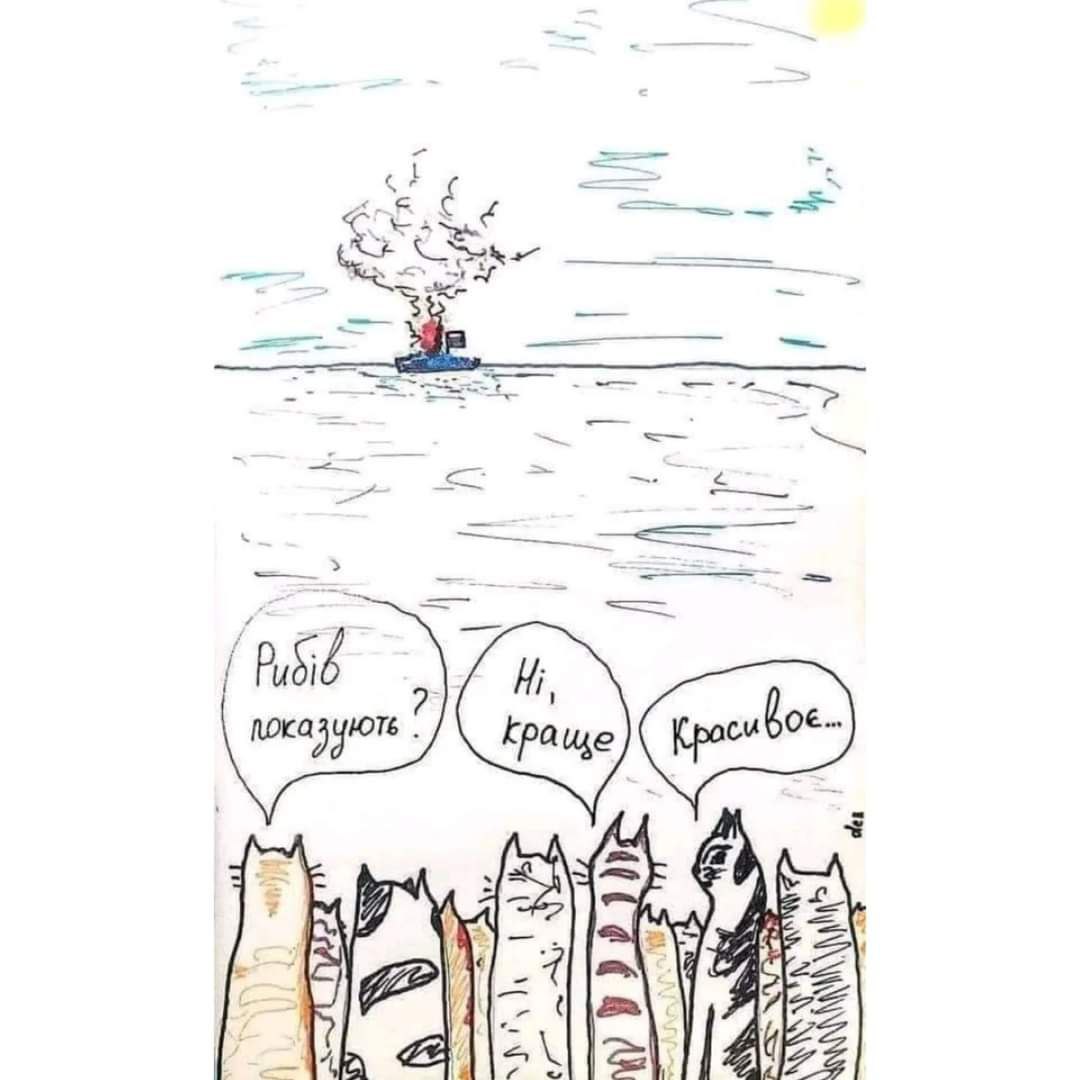 Рибів
показують?
Ні,
краще
Красивоє...
des